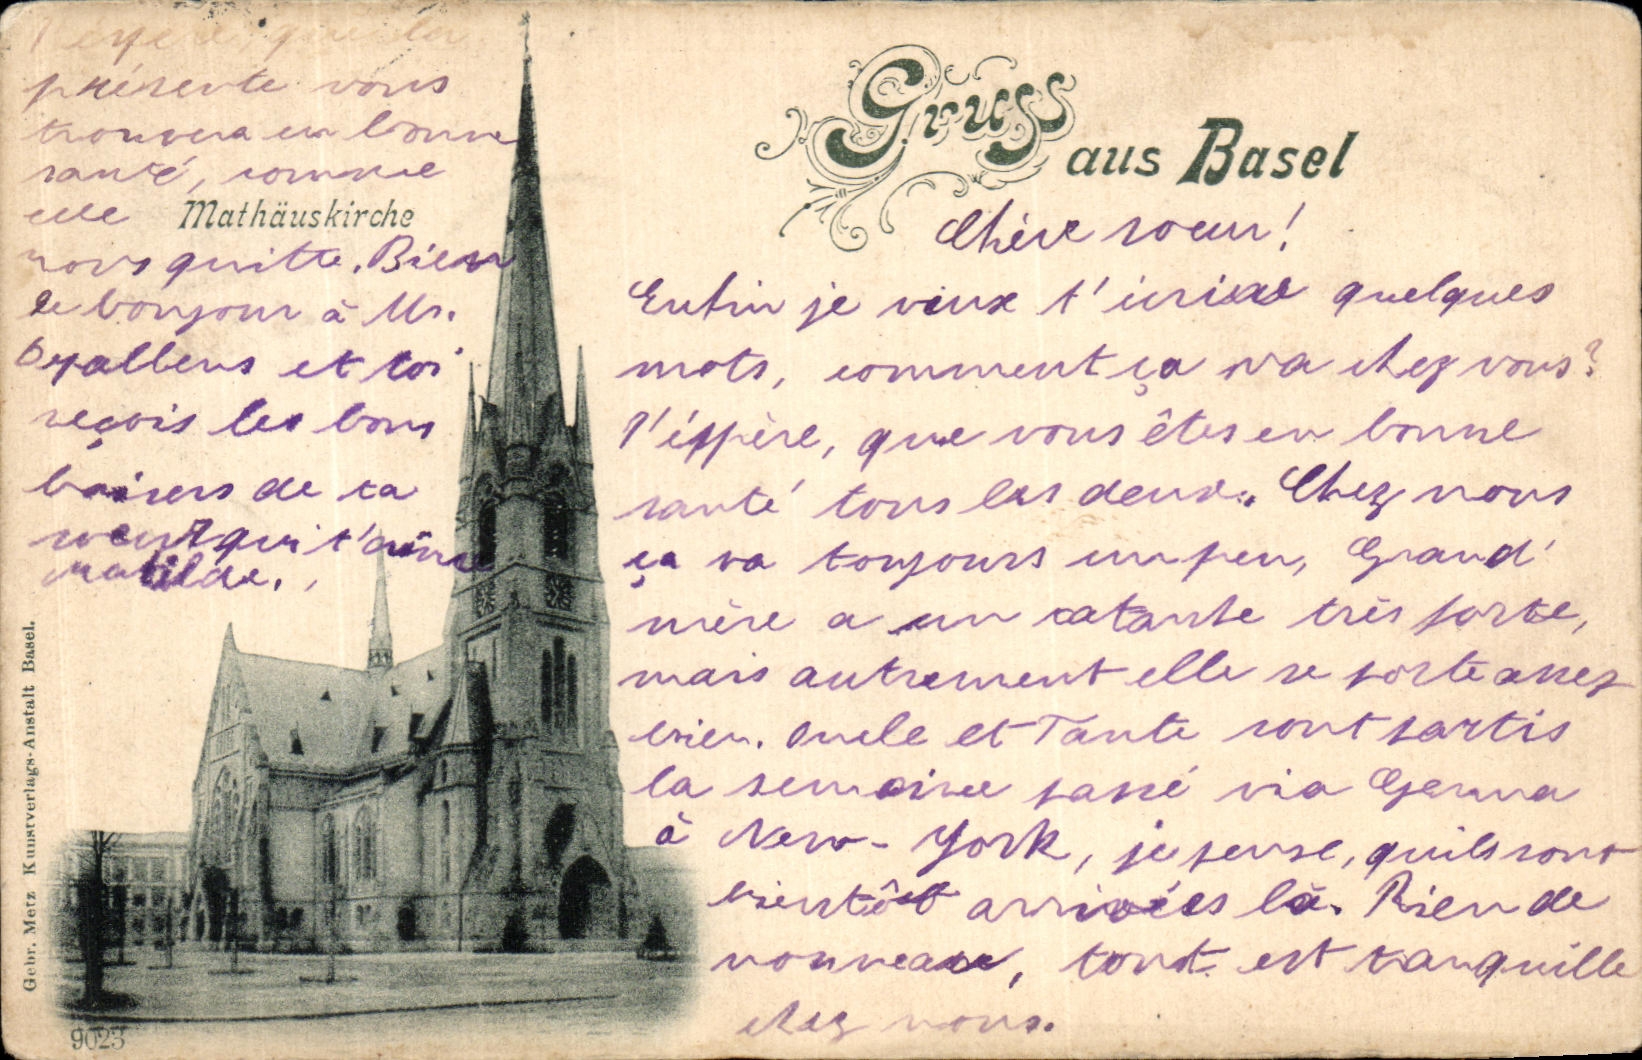 Gruss
aus Basel
Chère soeur!
Enfin je veux t'écrire quelques
mots, comment ça va chez vous?
J'éspère, que vous êtes en bonne
santé tous les deux. Chez nous
ça va toujours un peu, Grand'
mère a un catarrhe très forte,
mais autrement elle se porte assez
bien. Oncle et Tante sont partis
la semaine passé via Genua
à New-York, je pense, quils sont
bientôt arrivées là. Rien de
nouveau, tout est tranquille
chez nous.
J'espère, que la
présente vous
trouvera en bonne
santé, comme
elle
Mathäuskirche
nous quitte. Bien
le bonjour à Mr.
et toi
reçois les bons
baisers de ta
soeur qui t'aime
Matilde.
Gebr. Metz Kunstverlags-Anstalt Basel.
9023